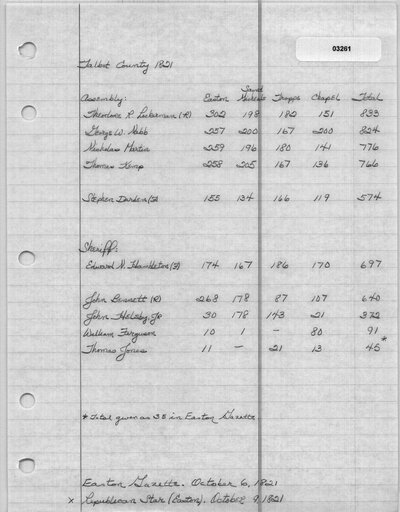 03261
Talbot County 1821
Assembly: Easton Saint Michaels Trappe Chapel Total
Theodore R. Lockerman (R) 302 198 182 151 833
George W. Nabb 257 200 167 200 824
Nicholas Martin 259 196 180 141 776
Thomas Kemp 258 205 167 136 766
Stephen Darden (F) 155 134 166 119 574
Sheriff:
Edward N. Hambleton (F) 174 167 186 170 697
John Bennett (R) 268 178 87 107 640
John Helsby, Jr 30 178 143 21 372
William Ferguson 10 1 - 80 91
Thomas Jones 11 - 21 13 45*
*Total given as 35 in Easton Gazette
Easton Gazette. October 6, 1821
x Republican Star (Easton). October 9, 1821